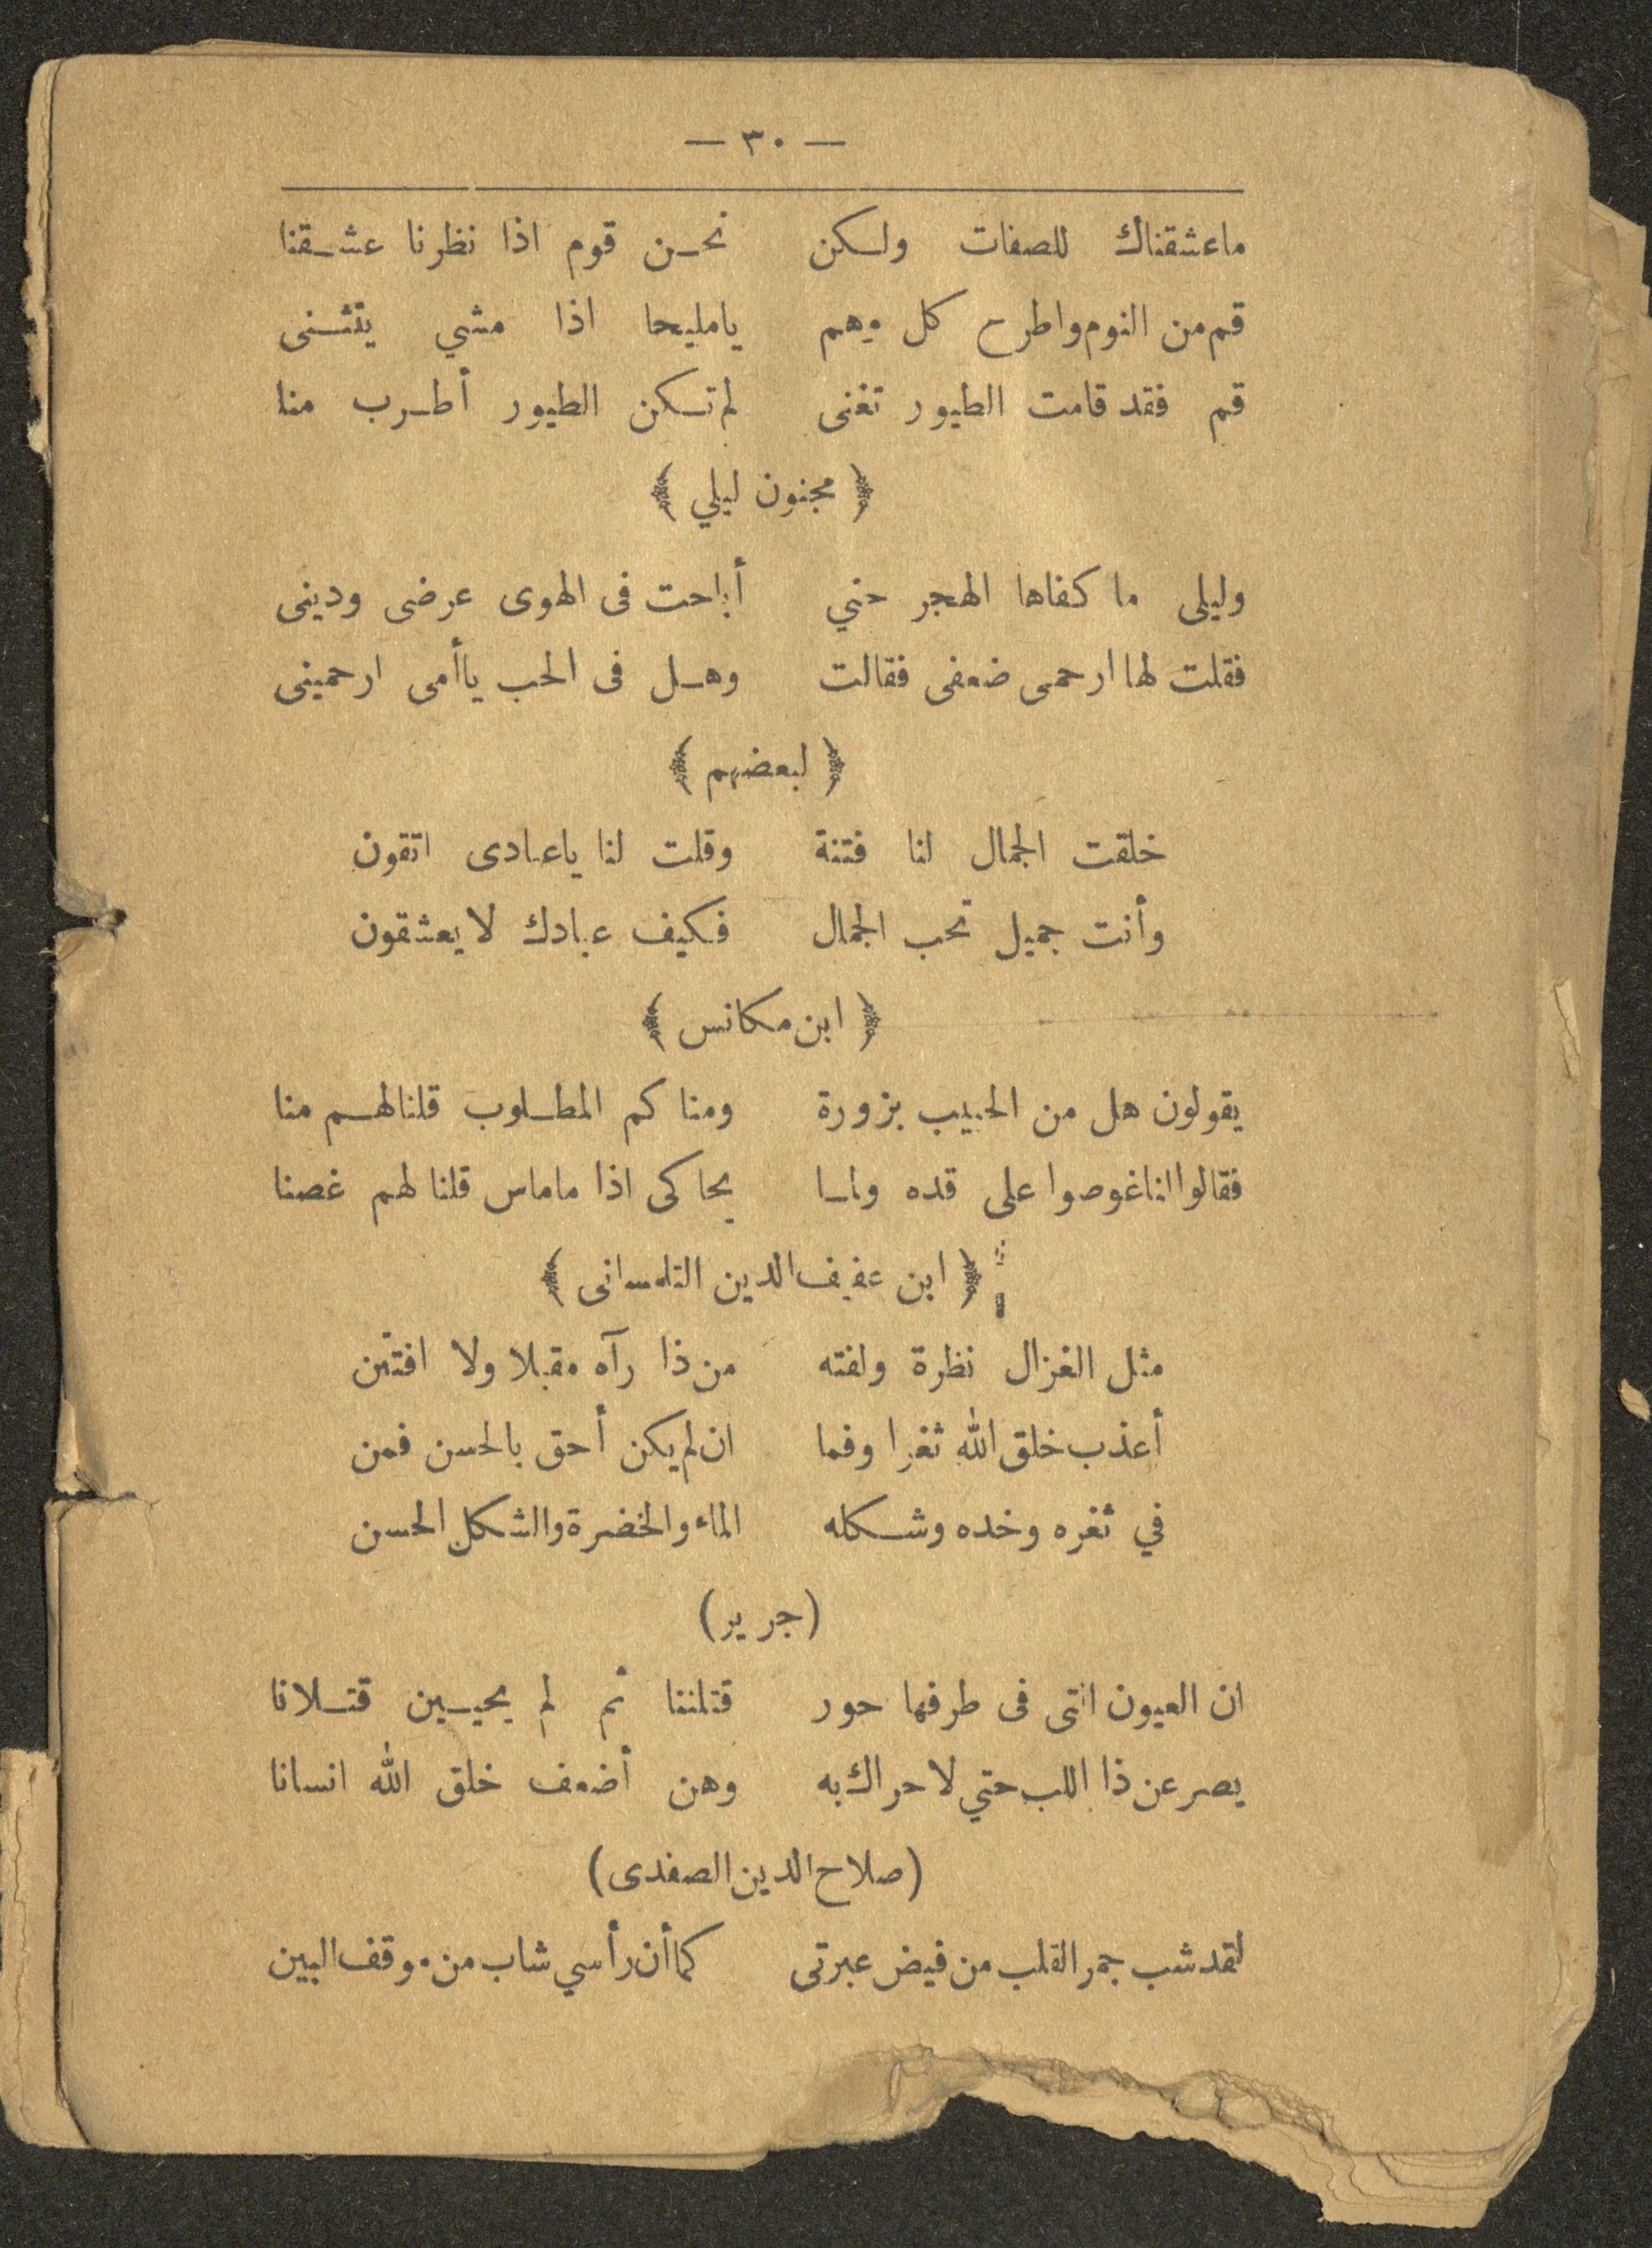 — ٣٠ —
ماعشقناك للصفات ولكن نحن قوم اذا نظرنا عشقنا
قم من النوم واطرح كل وهم يامليحا اذا مشي يتثنى
قم فقد قامت الطيور تغنى لم تكن الطيور أطرب منا
﴿ مجنون ليلي ﴾
وليلى ما كفاها الهجر حني أباحت فى الهوى عرضى ودينى
فقلت لها ارحمى ضعفى فقالت وهل فى الحب ياأمى ارحمينى
﴿ لبعضهم ﴾
خلقت الجمال لنا فتنة وقلت لنا ياعبادى اتقون
وأنت جميل تحب الجمال فكيف عبادك لا يعشقون
﴿ ابن مكانس ﴾
يقولون هل من الحبيب بزورة ومناكم المطلوب قلنا لهم منا
فقالوا لنا غوصوا على قده وما يحاكى اذا ماماس قلنا لهم غصنا
﴿ ابن عفيف الدين التلمسانى ﴾
مثل الغزال نظرة ولفته من ذا رآه مقبلا ولا افتتن
أعذب خلق الله ثغرا وفما ان لم يكن أحق بالحسن فمن
في ثغره وخده وشكله الماء والخضرة والشكل الحسن
(جرير)
ان العيون التى فى طرفها حور قتلننا ثم لم يحيين قتلانا
يصرعن ذا اللب حتي لا حراك به وهن أضعف خلق الله انسانا
(صلاح الدين الصفدى)
لقد شب جمر القلب من فيض عبرتى كما أن رأسي شاب من موقف البين